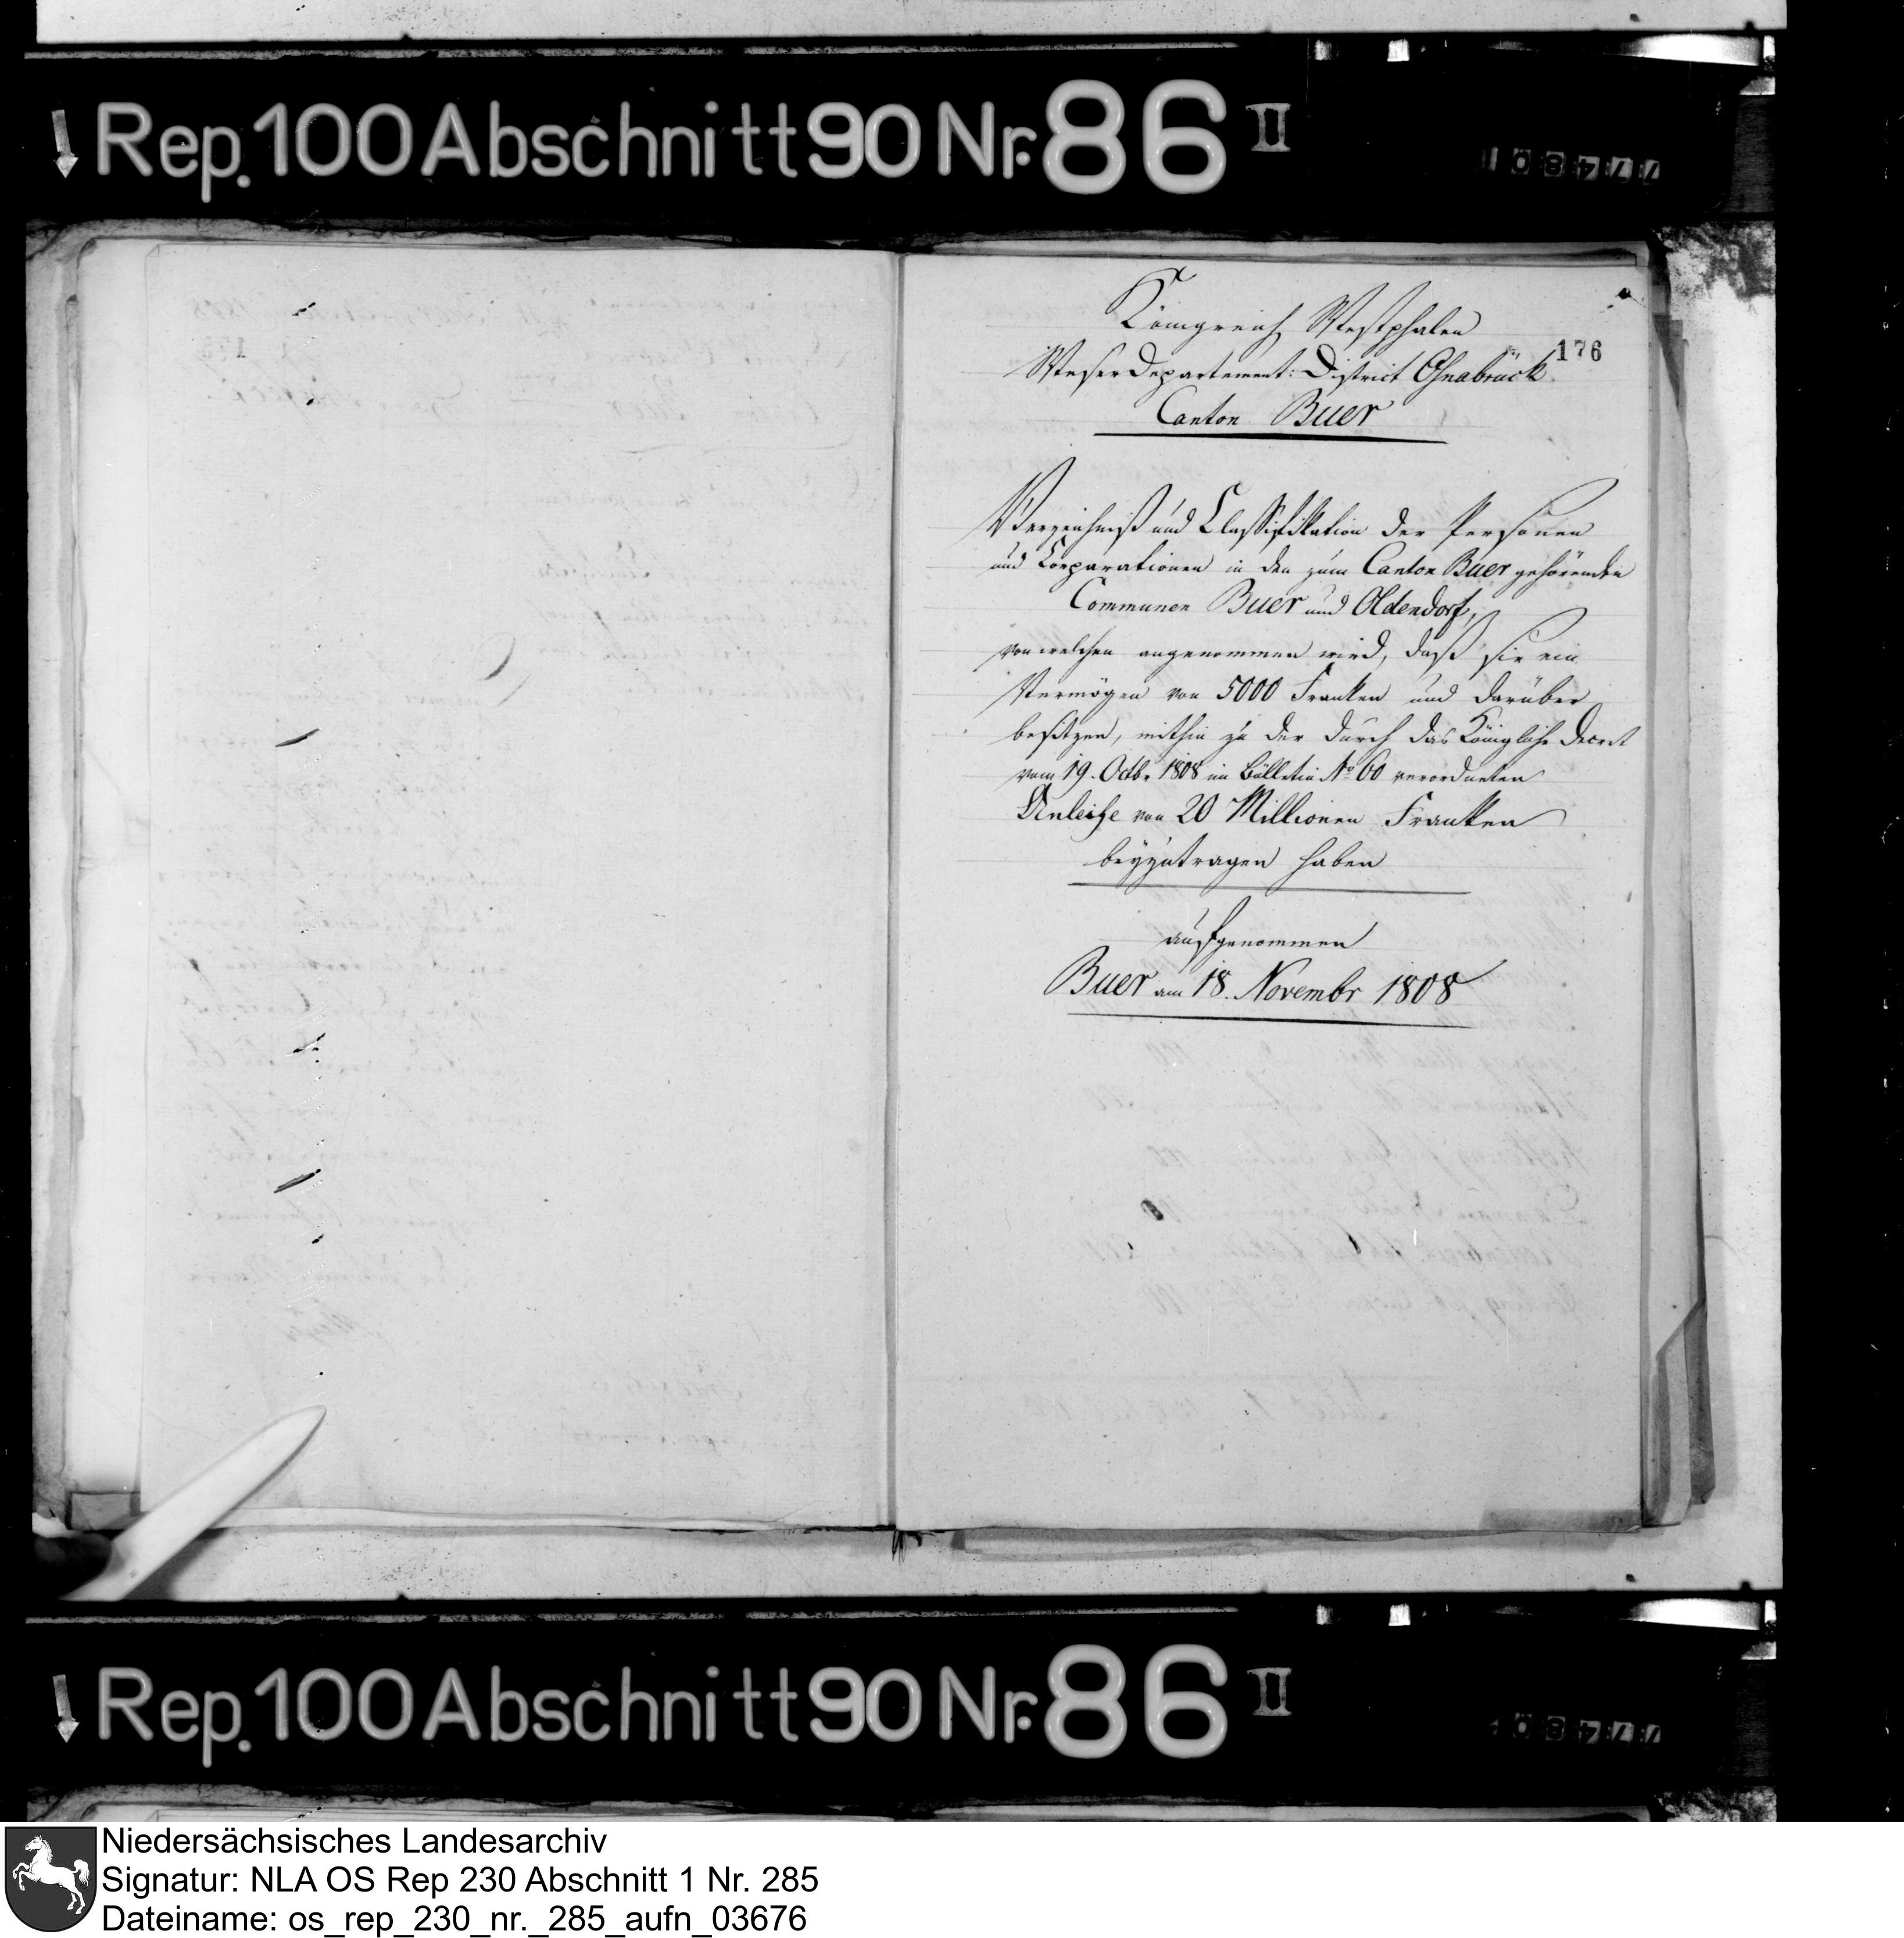 Rep. 100 Abschnitt 90 Nr. 86 II
Königreich Westphalen
176
Weser Departement: District Osnabrück
Canton Buer
Verzeichniß und Classifikation der Personen
und Corparationen in den zum Canton Buer gehörenden
Communen Buer und Oldendorf,
von welchen angenommen wird, daß sie ein
Vermögen von 5000 Franken und darüber
besitzen, mithin zu der durch das Königliche Decret
vom 19. Octbr 1808 im Bülletin No 60 verordneten
Anleihe von 20 Millionen Franken
beyzutragen haben
aufgenommen
Buer am 18. Novembr 1808
Rep. 100 Abschnitt 90 Nr. 86 II
Niedersächsisches Landesarchiv
Signatur: NLA OS Rep 230 Abschnitt 1 Nr. 285
Dateiname: os_rep_230_nr._285_aufn_03676